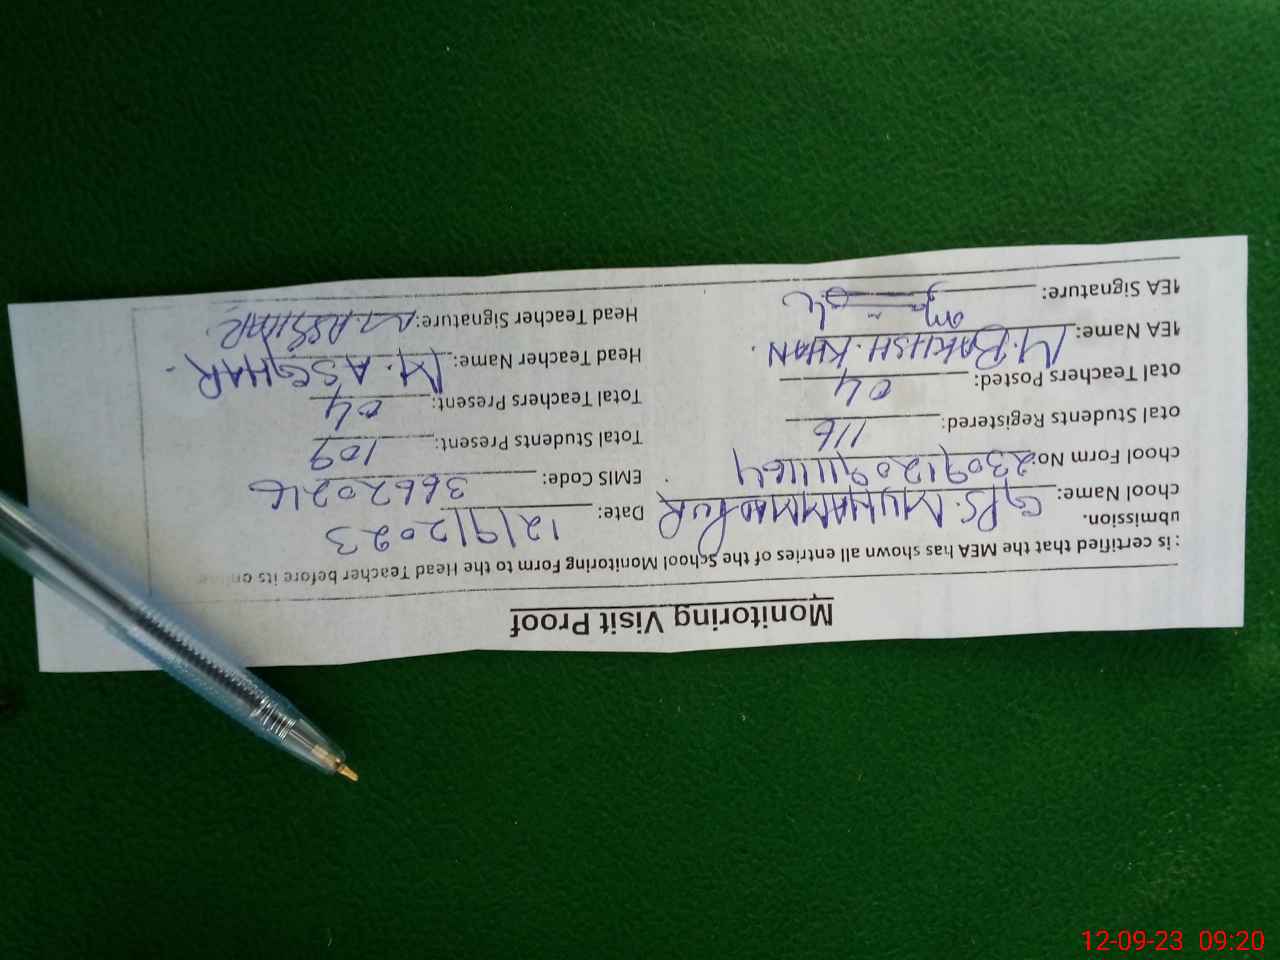 Monitoring Visit Proof
: is certified that the MEA has shown all entries of the School Monitoring Form to the Head Teacher before its online
ubmission.
chool Name: GPS. MUHAMMAD PUR Date: 12/9/2023
chool Form No: 230912091164 EMIS Code: 36620216
otal Students Registered: 116 Total Students Present: 109
otal Teachers Posted: 04 Total Teachers Present: 04
1EA Name: M. BAKHSH. KHAN. Head Teacher Name: M. ASGHAR.
1EA Signature: Head Teacher Signature: M. ASGHAR.
12-09-23 09:20